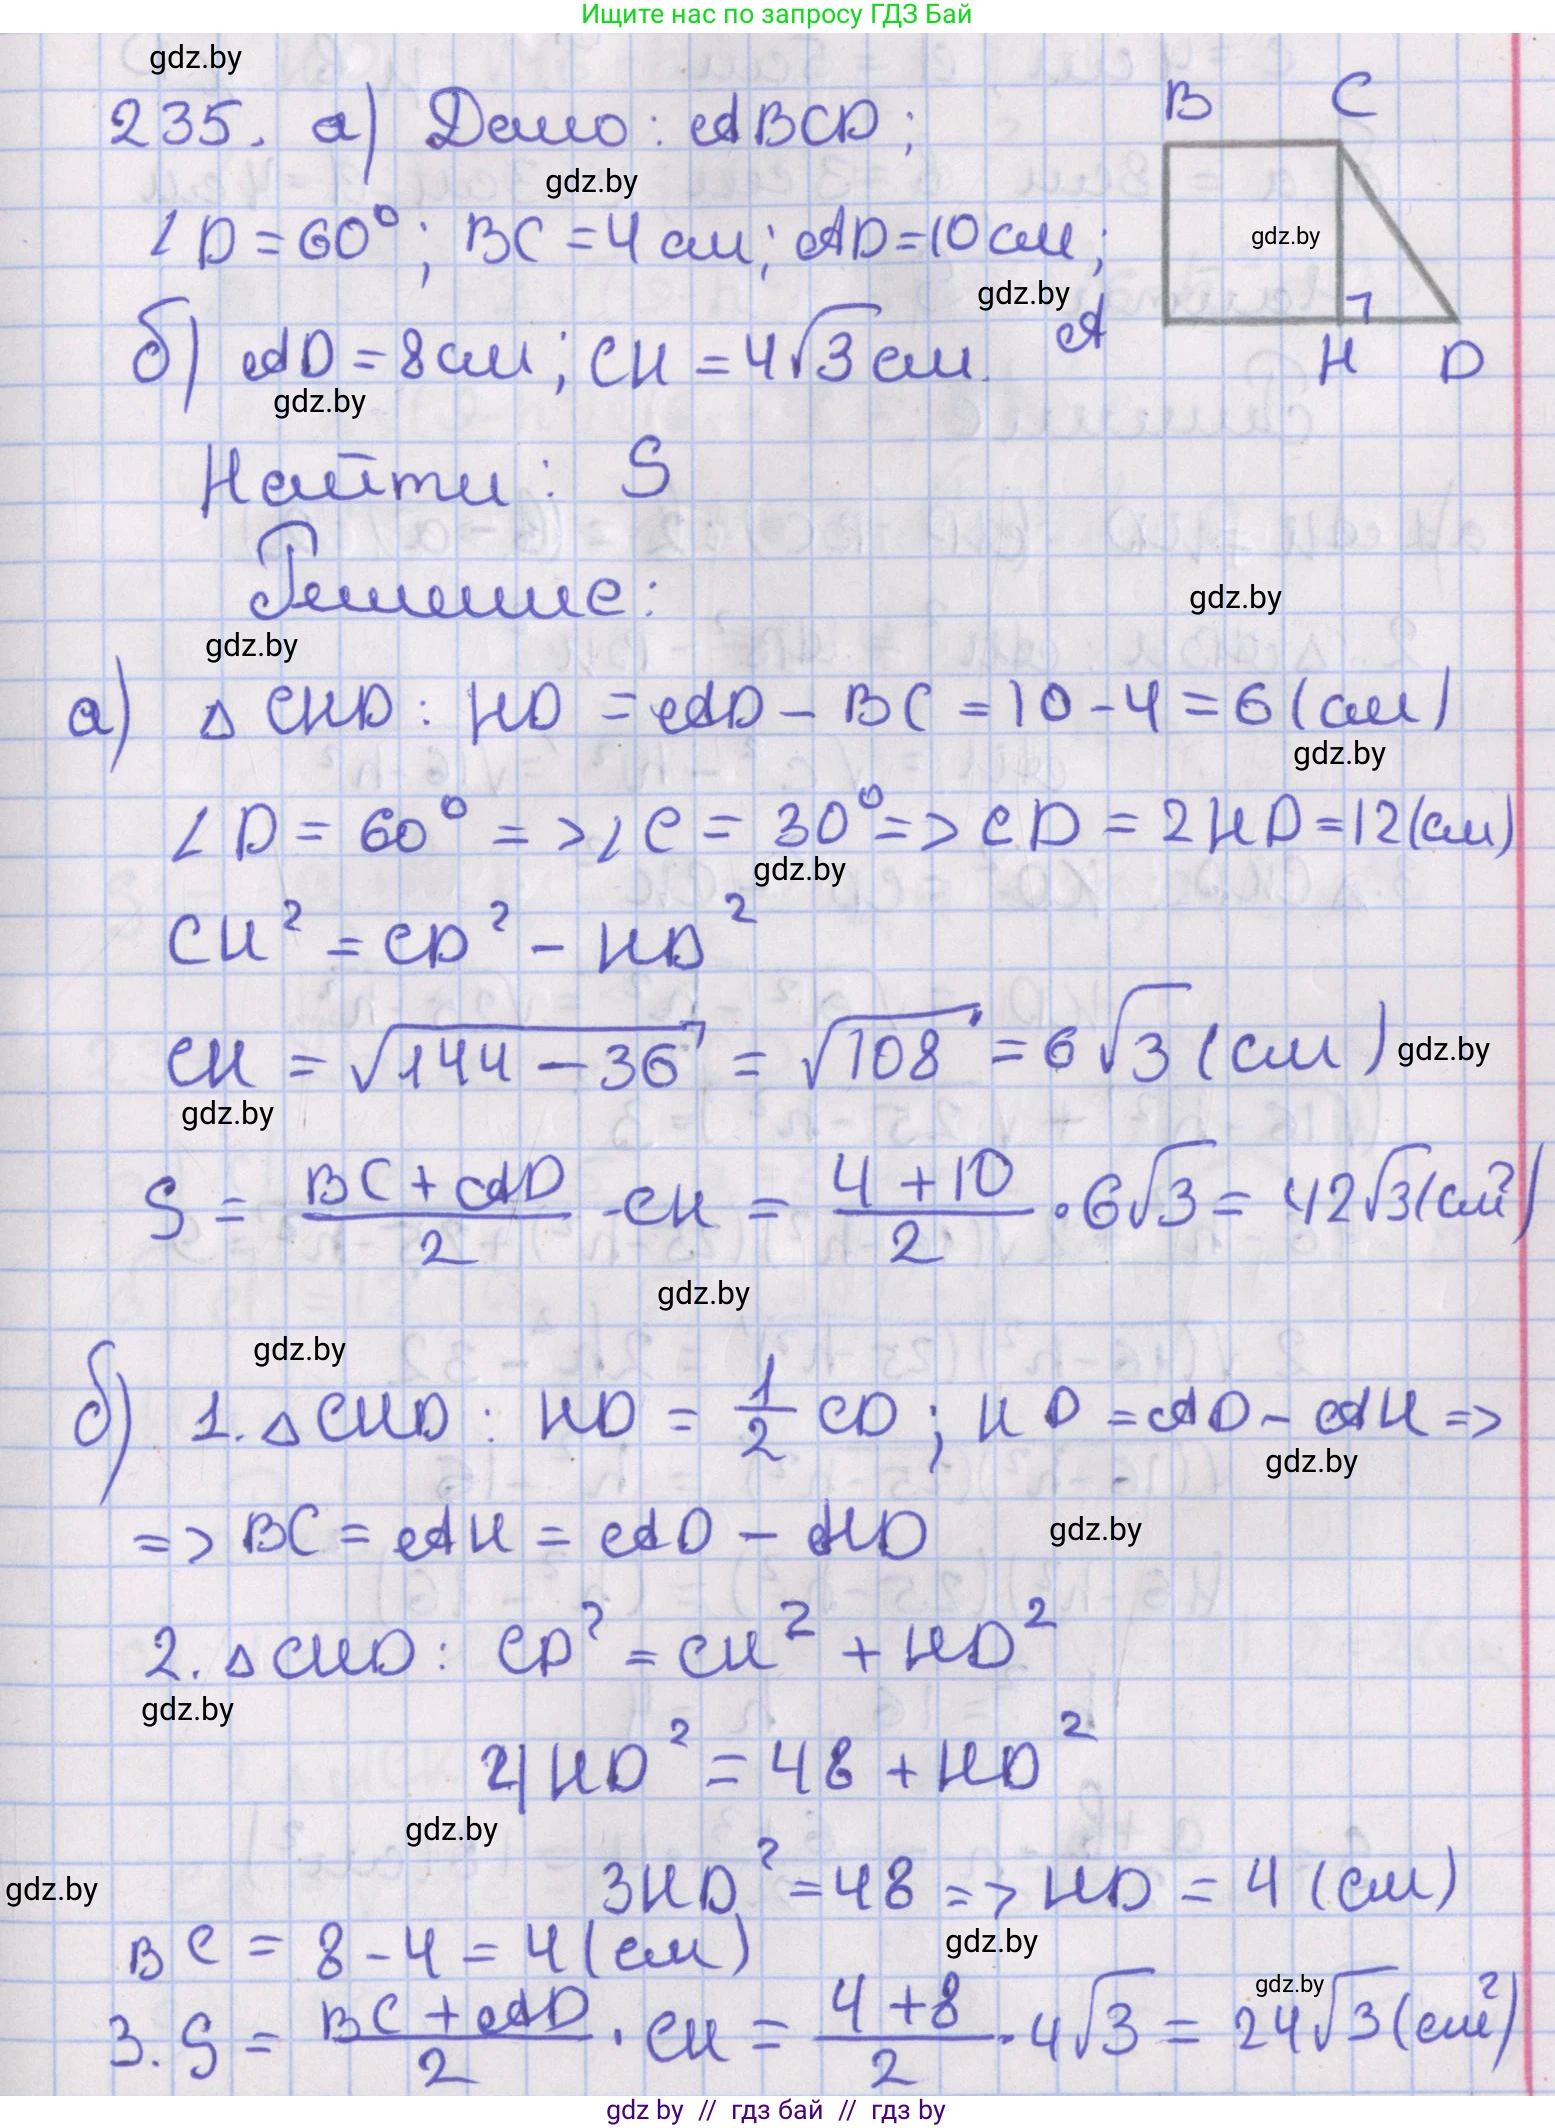 Ищите нас по запросу ГДЗ Бай
gdz.by
235. а) Дано: ABCD;
B C
gdz.by
∠D = 60°; BC = 4 см; AD = 10 см;
gdz.by
gdz.by
б) AD = 8 см; CH = 4√3 см.
A
H D
gdz.by
Найти: S
Решение:
gdz.by
gdz.by
а) △ CHD: HD = AD - BC = 10 - 4 = 6 (см)
gdz.by
∠D = 60° => ∠C = 30° => CD = 2HD = 12 (см)
gdz.by
CH² = CD² - HD²
CH = √144 - 36 = √108 = 6√3 (см)
gdz.by
gdz.by
S = BC + AD / 2 · CH = 4 + 10 / 2 · 6√3 = 42√3 (см²)
gdz.by
gdz.by
б) 1. △ CHD: HD = 1/2 CD; HD = AD - AH =>
gdz.by
=> BC = AH = AD - HD
gdz.by
2. △ CHD: CD² = CH² + HD²
gdz.by
4HD² = 48 + HD²
gdz.by
3HD² = 48 => HD = 4 (см)
gdz.by
BC = 8 - 4 = 4 (см)
gdz.by
gdz.by
3. S = BC + AD / 2 · CH = 4 + 8 / 2 · 4√3 = 24√3 (см²)
gdz by // гдз бай // гдз by